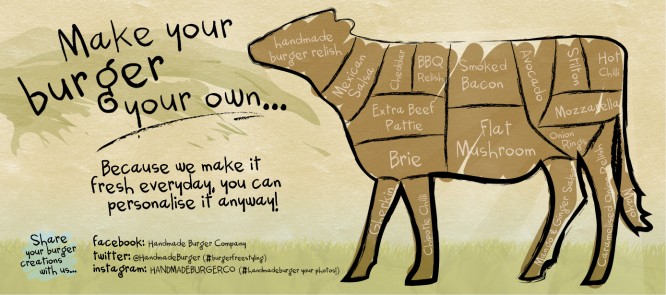 Make your
burger
your own...
Because we make it
fresh everyday, you can
personalise it anyway!
Share
your burger
creations
with us...
facebook: Handmade Burger Company
twitter: @HandmadeBurger (#burgerfreestyling)
instagram: HANDMADEBURGERCO (#handmadeburger your photos!)
handmade
burger relish
Mexican
Salsa
Cheddar
BBQ
Relish
Smoked
Bacon
Avocado
Stilton
Hot
Chilli
Extra Beef
Pattie
Flat
Mushroom
Mozzarella
Onion
Rings
Brie
Gherkin
Chorie Chilli
Mango & Ginger Salsa
Caramelised Onion Relish
Mayo